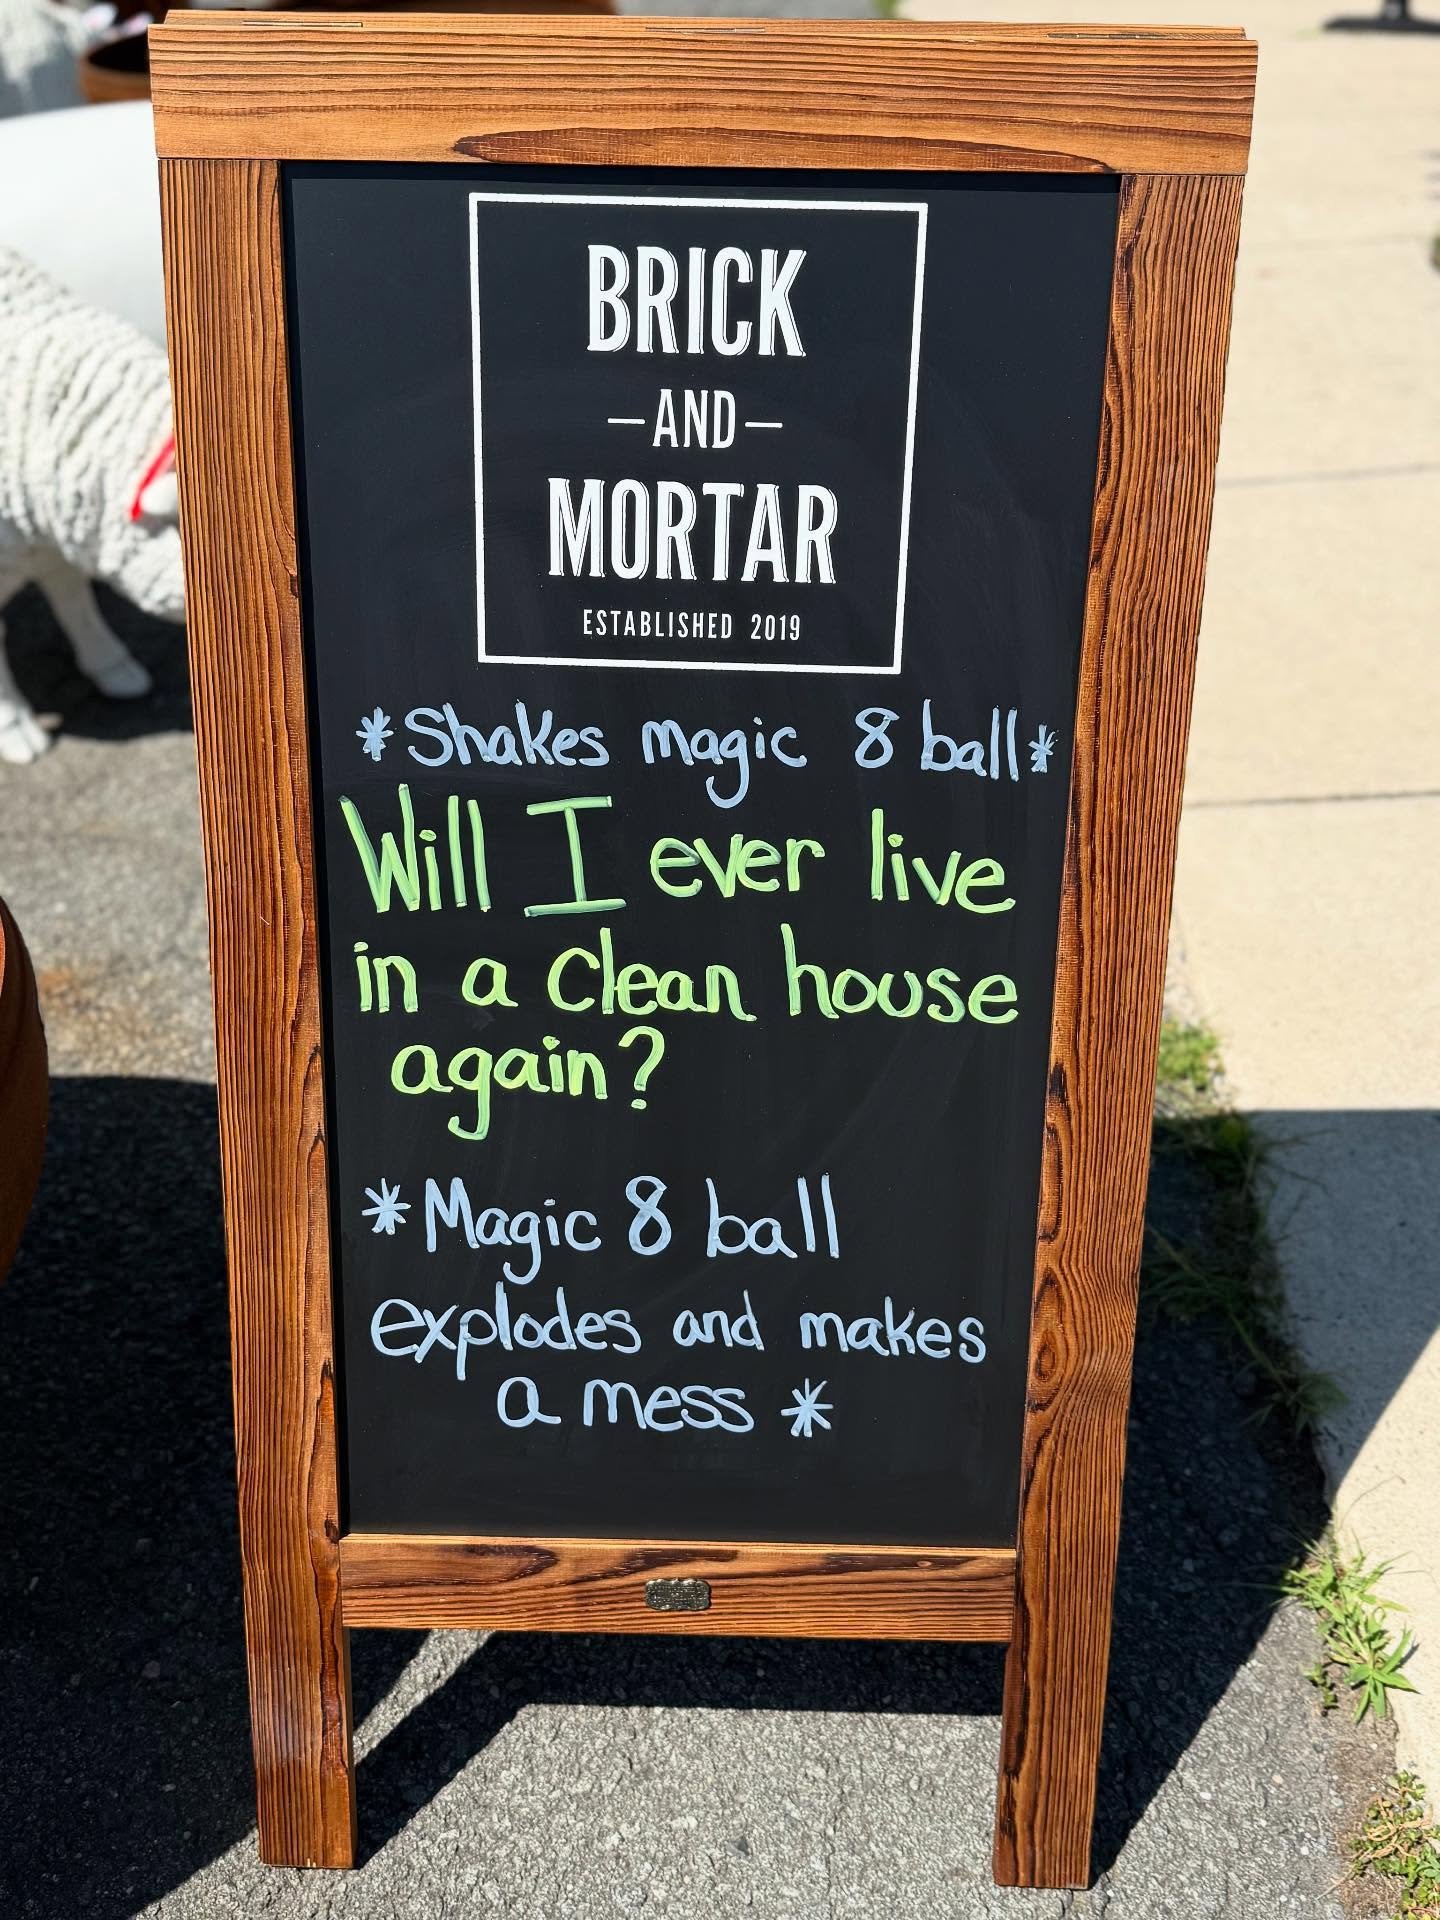 BRICK
—AND—
MORTAR
ESTABLISHED 2019
*Shakes magic 8 ball*
Will I ever live
in a clean house
again?
*Magic 8 ball
explodes and makes
a mess*